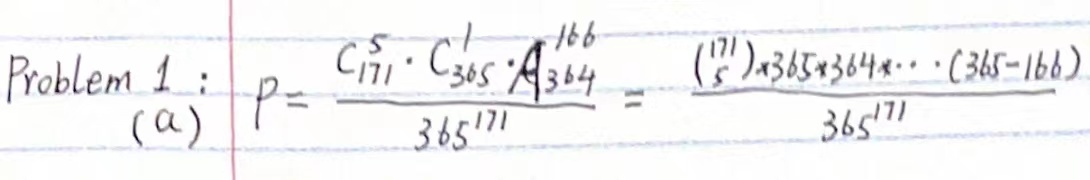 Problem 1 : P = \frac{C_{171}^{5} \cdot C_{365}^{1} \cdot A_{364}^{166}}{365^{171}} = \frac{\binom{171}{5} \times 365 \times 364 \times \cdots (365-166)}{365^{171}}
(a)